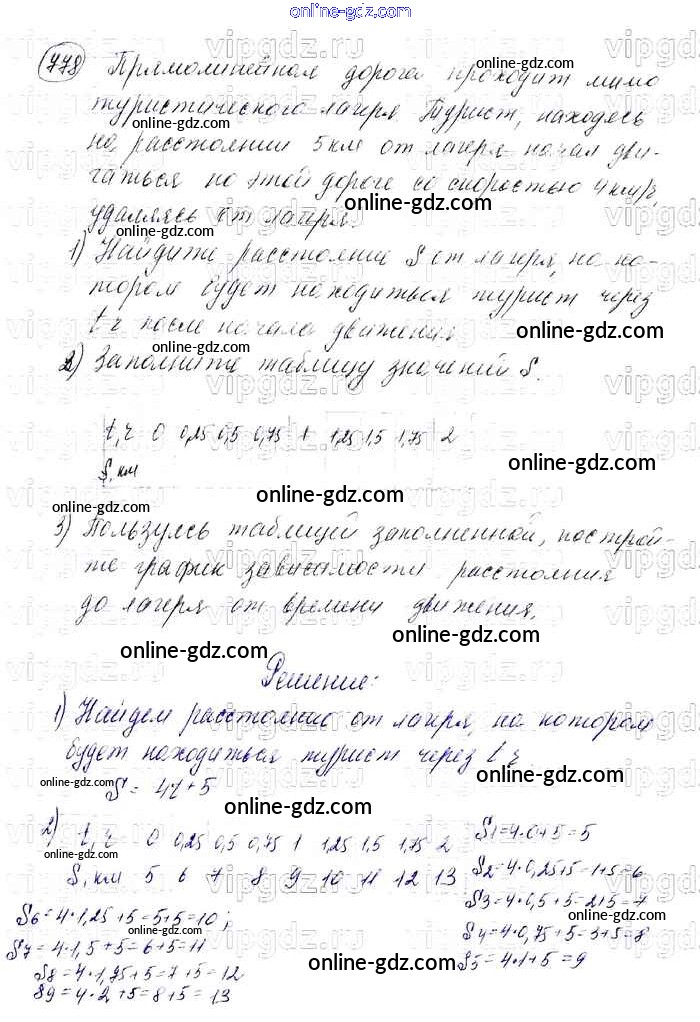 778 Прямолинейная дорога проходит мимо
туристического лагеря Турист, находясь
на расстоянии 5 км от лагеря начал дви-
гаться по этой дороге со скоростью 4 км/ч,
удаляясь от лагеря.
1) Найдите расстояние S от лагеря, на ко-
тором будет находиться турист через
t ч после начала движения
2) Заполните таблицу значений S.
t, ч 0 0,25 0,5 0,75 1 1,25 1,5 1,75 2
S, км
3) Пользуясь таблицей заполненной, построй-
те график зависимости расстояния
до лагеря от времени движения.
Решение:
1) Найдем расстояние от лагеря, на котором
будет находиться турист через t ч
S = 4t + 5
2) t, ч 0 0,25 0,5 0,75 1 1,25 1,5 1,75 2
S, км 5 6 7 8 9 10 11 12 13
S1 = 4·0+5 = 5
S2 = 4·0,25+5 = 1+5 = 6
S3 = 4·0,5+5 = 2+5 = 7
S4 = 4·0,75+5 = 3+5 = 8
S5 = 4·1+5 = 9
S6 = 4·1,25+5 = 5+5 = 10;
S7 = 4·1,5+5 = 6+5 = 11
S8 = 4·1,75+5 = 7+5 = 12
S9 = 4·2+5 = 8+5 = 13
online-gdz.com
vipgdz.ru